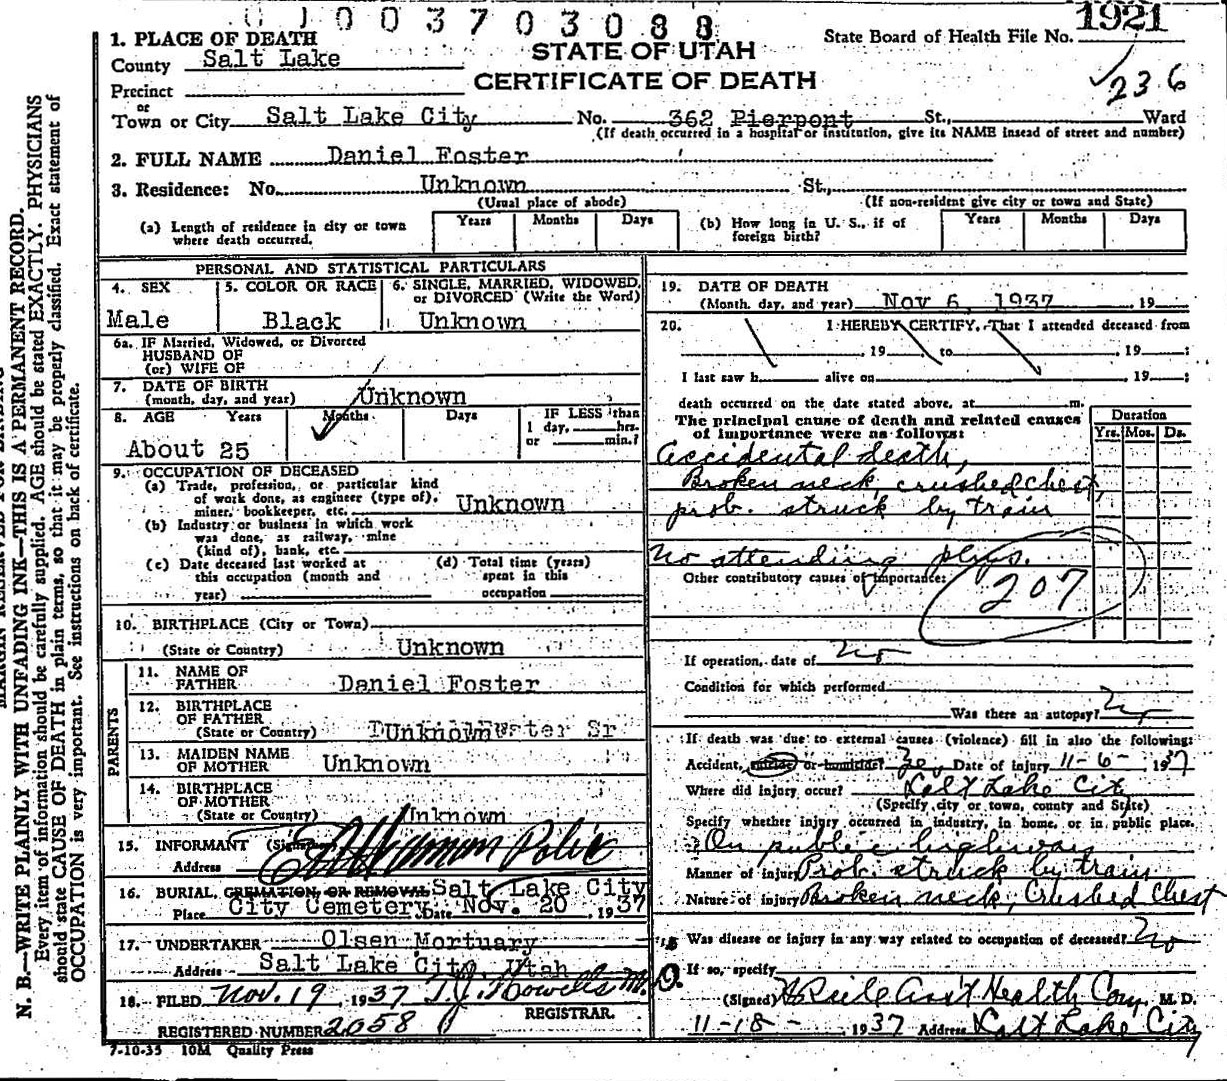 0 1 0 0 3 7 0 3 0 8 8
1921
1. PLACE OF DEATH
STATE OF UTAH
State Board of Health File No.
County Salt Lake
CERTIFICATE OF DEATH
236
Precinct
or
Town or City Salt Lake City No. 362 Pierpont St., Ward
(If death occurred in a hospital or institution, give its NAME insead of street and number)
2. FULL NAME Daniel Foster
3. Residence: No. Unknown St.,
(Usual place of abode) (If non-resident give city or town and State)
(a) Length of residence in city or town where death occurred. Years Months Days
(b) How long in U. S., if of foreign birth? Years Months Days
PERSONAL AND STATISTICAL PARTICULARS
4. SEX Male
5. COLOR OR RACE Black
6. SINGLE, MARRIED, WIDOWED, or DIVORCED (Write the Word) Unknown
6a. IF Married, Widowed, or Divorced
HUSBAND OF
(or) WIFE OF
7. DATE OF BIRTH
(month, day, and year) Unknown
8. AGE Years Months Days IF LESS than
1 day, hrs.
or min.?
About 25
9. OCCUPATION OF DECEASED
(a) Trade, profession, or particular kind
of work done, as engineer (type of),
miner, bookkeeper, etc. Unknown
(b) Industry or business in which work
was done, as railway, mine
(kind of), bank, etc.
(c) Date deceased last worked at
this occupation (month and
year)
(d) Total time (years)
spent in this
occupation
10. BIRTHPLACE (City or Town)
(State or Country) Unknown
PARENTS
11. NAME OF
FATHER Daniel Foster
12. BIRTHPLACE
OF FATHER
(State or Country) Unknown Sr
13. MAIDEN NAME
OF MOTHER Unknown
14. BIRTHPLACE
OF MOTHER
(State or Country) Unknown
15. INFORMANT Police
Address
16. BURIAL, CREMATION, OR REMOVAL Salt Lake City
Place City Cemetery Date Nov. 20, 1937
17. UNDERTAKER Olsen Mortuary
Address Salt Lake City, Utah
18. FILED Nov. 19, 1937 T.J. Howells M.D.
REGISTRAR.
REGISTERED NUMBER 2058
7-10-35 10M Quality Press
19. DATE OF DEATH
(Month, day, and year) Nov 6, 1937, 19
20. I HEREBY CERTIFY, That I attended deceased from
, 19 , to , 19 ;
I last saw h alive on , 19 ;
death occurred on the date stated above, at m.
The principal cause of death and related causes
of importance were as follows:
Duration
Yrs. Mos. Ds.
Accidental death,
Broken neck, crushed chest,
prob. struck by train
No attending phys.
Other contributory causes of importance:
207
If operation, date of no
Condition for which performed
Was there an autopsy? no
If death was due to external causes (violence) fill in also the following:
Accident, suicide or homicide? Date of injury 11-6- 1937
Where did injury occur? Salt Lake City
(Specify city or town, county and State)
Specify whether injury occurred in industry, in home, or in public place.
On public highway
Manner of injury Prob. struck by train
Nature of injury Broken neck, Crushed Chest
Was disease or injury in any way related to occupation of deceased? no
If so, specify
(Signed) Ass't Health Com, M. D.
11-18- 1937 Address Salt Lake City
N. B.—WRITE PLAINLY WITH UNFADING INK—THIS IS A PERMANENT RECORD.
Every item of information should be carefully supplied. AGE should be stated EXACTLY. PHYSICIANS
should state CAUSE OF DEATH in plain terms, so that it may be properly classified. Exact statement of
OCCUPATION is very important. See instructions on back of certificate.